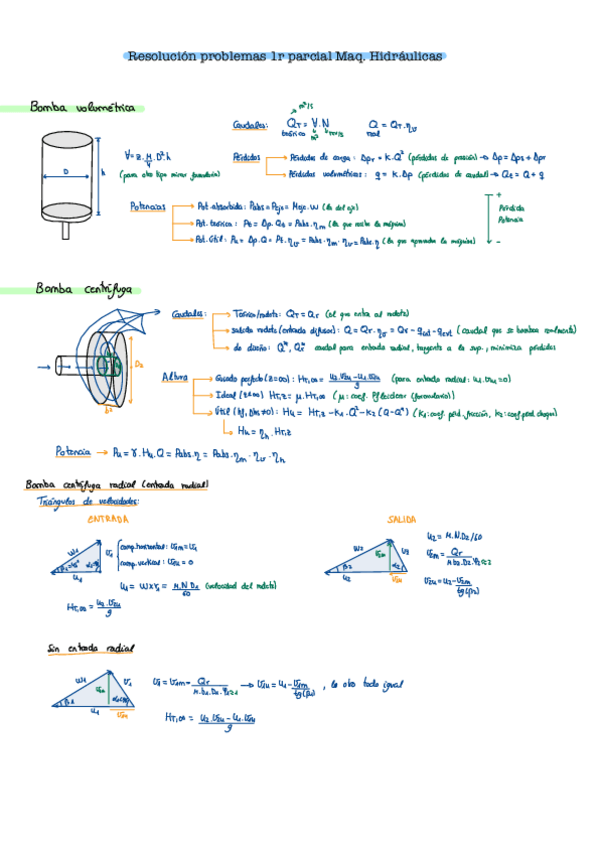 Resolución problemas 1r parcial Maq. Hidráulicas
Bomba volumétrica
D
h
∀=z.π/4.D².h
(para otro tipo mirar formulario)
m³/s
Caudales: QT = ∀.N Q = QT.ηv
teórico m³ rev/s real
Pérdidas → Pérdidas de carga: Δpr = K.Q² (pérdidas de presión) → Δp = Δps + Δpr
→ Pérdidas volumétricas: q = K.Δp (pérdidas de caudal) → Qt = Q + q
Potencias → Pot. absorbida: Pabs = Peje = Meje.w (la del eje)
→ Pot. teórica: Pt = Δp.Qt = Pabs.ηm (la que recibe la máquina)
→ Pot. útil: Pu = Δp.Q = Pt.ηv = Pabs.ηm.ηv = Pabs.η (la que aprovecha la máquina)
+
Pérdida
Potencia
-
Bomba centrífuga
D2
b2
Caudales: → Teórico/rodete: QT = Qr (el que entra al rodete)
→ salida rodete (entrada difusor): Q = Qr.ηv = Qr - qint - qext (caudal que se bombea realmente)
→ de diseño: Q*, Qr* caudal para entrada radial, tangente a la sup., minimiza pérdidas
Altura → Guiado perfecto (z=∞): HT,∞ = u2.v2u - u1.v1u / g (para entrada radial: u1.v1u = 0)
→ Ideal (z≠∞) HT,z = μ.HT,∞ (μ: coef. Pfleiderer (formulario))
→ Útil (hf, hch ≠ 0): Hu = HT,z - K1.Q² - K2 (Q-Q*)² (K1: coef. pérd. fricción, K2: coef. pérd. choque)
→ Hu = ηh.HT,z
Potencia → Pu = γ.Hu.Q = Pabs.η = Pabs.ηm.ηv.ηh
Bomba centrífuga radial (entrada radial)
Triángulos de velocidades:
ENTRADA SALIDA
w1 v1 u1
comp. horizontal: v1m = v1
comp. vertical: v1u = 0
u1 = w x r1 = π.N.D1 / 60 (velocidad del rodete)
HT,∞ = u2.v2u / g
w2 v2m v2 β2 α2 u2 v2u
u2 = π.N.D2/60
v2m = Qr / π.b2.D2
v2u = u2 - v2m / tg(β2)
Sin entrada radial
w1 v1m v1 β1 u1 v1u
v1u = u1 - v1m / tg(β1) , lo otro todo igual
HT,∞ = u2.v2u - u1.v1u / g